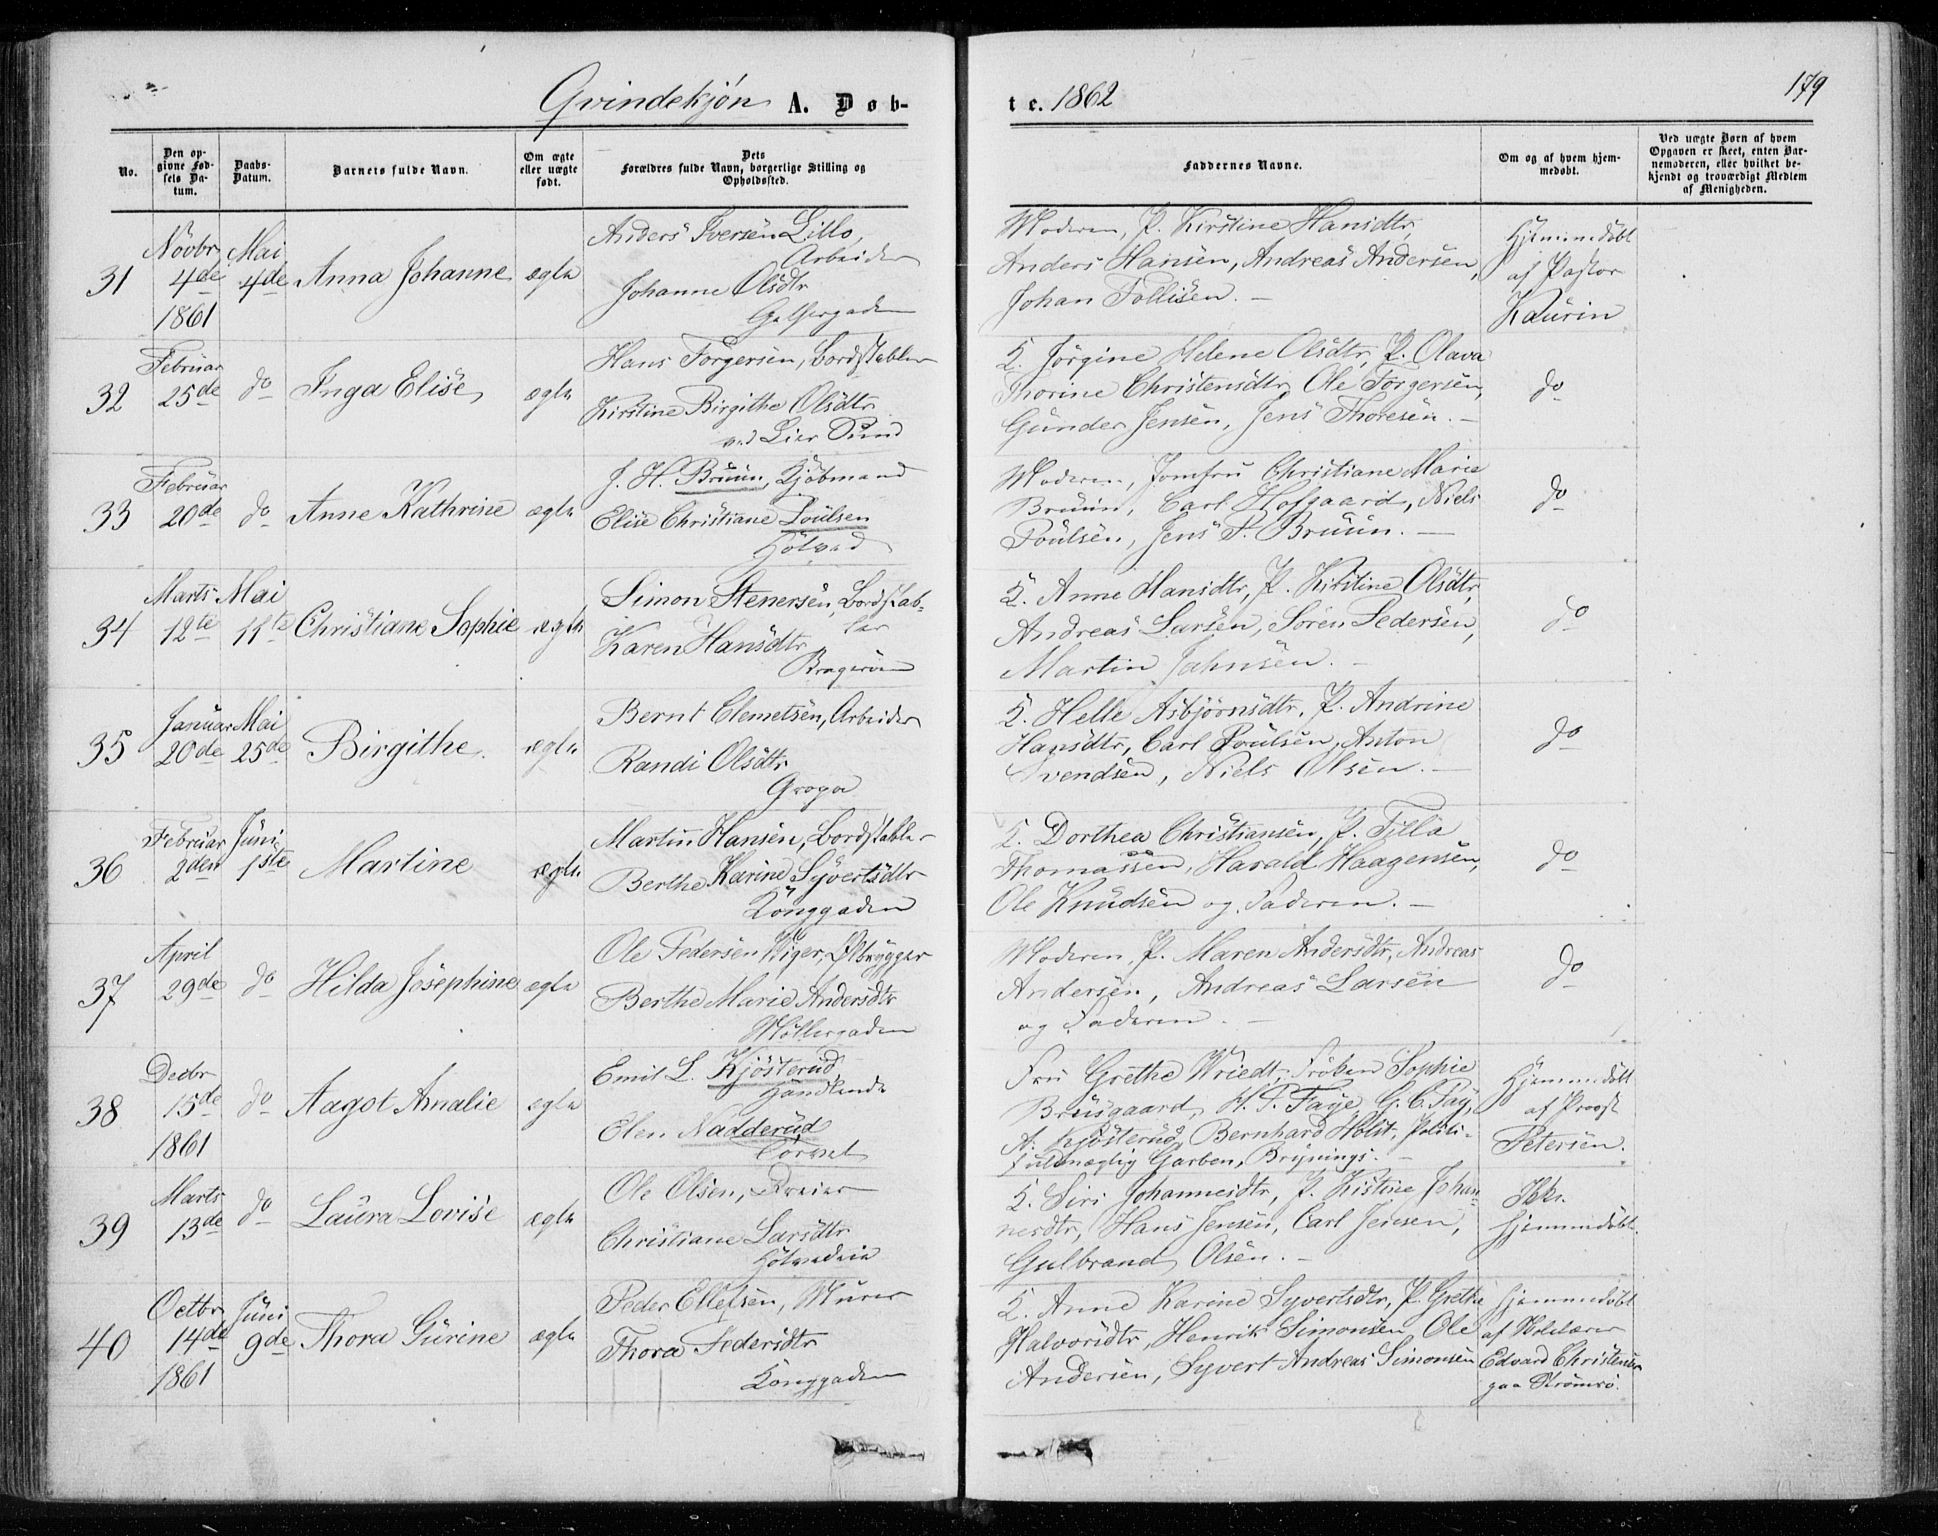 Qvindekjøn A. Døb-
te. 1862
179
No.
Den op-
givne Fød-
sels Da-
tum.
Daabs-
Datum.
Barnets fulde Navn.
Om ægte
eller uægte
født.
Dets
Forældres fulde Navn, borgerlige Stilling og
Opholdssted.
Faddernes Navne.
Om og af hvem hjem-
medøbt.
Ved uægte Børn af hvem
Opgaven er skeet, enten Bar-
nemoderen, eller hvilket be-
kjendt og troværdigt Medlem
af Menigheden.
31
Novbr
4de
1861
Mai
4de
Anna Johanne
ægte
Anders Iversen Lillo,
Arbeider
Johanne Olsdtr
Moderen, P. Kirstine Hansdtr,
Anders Hansen, Andreas Andersen,
Johan Tollisen. -
Hjemmedøbt
af Pastor
Kaurin
32
Februar
25de
do
Inga Elise
ægte
Hans Torgersen, Bordstabler
Kirstine Birgithe Olsdtr
ved Lier Sund
K. Jørgine Helene Olsdtr, P. Olava
Thorine Christensdtr, Ole Torgersen,
Gunder Jensen, Jens Thoresen. -
do
33
Februar
20de
do
Anne Kathrine
ægte
J. H. Bruun, Kjøbmand
Elise Christiane Poulsen
Hotved
Moderen, Jomfru Christiane Marie
Bruun, Carl Hofgaard, Niels
Poulsen, Jens P. Bruun. -
do
34
Marts
12te
Mai
11te
Christiane Sophie
ægte
Simon Stenersen, Bordstab-
ler
Karen Hansdtr
Bragerøen
K. Anne Hansdtr, P. Kirstine Olsdtr,
Andreas Larsen, Søren Pedersen,
Martin Jahnsen. -
do
35
Januar
20de
Mai
25de
Birgithe
ægte
Bernt Clemetsen, Arbeider
Randi Olsdtr
Gropa
K. Helle Asbjørnsdtr, P. Andrine
Hansdtr, Carl Poulsen, Anton
Svendsen, Niels Olsen. -
do
36
Februar
2den
Juni
1ste
Martine
ægte
Martin Hansen, Bordstabler
Berthe Karine Syvertsdtr
Konggaden
K. Dorthea Christiansen, P. Tilla
Thomassen, Harald Haagensen,
Ole Knudsen og Faderen. -
do
37
April
29de
do
Hilda Josephine
ægte
Ole Pedersen Wiger, Ølbrygger
Berthe Marie Andersdtr
Møllergaden
Moderen, P. Maren Andersdtr, Andreas
Andersen, Andreas Larsen
og Faderen. -
do
38
Decbr
15de
1861
do
Aagot Amalie
ægte
Emil L. Kjøsterud
Handlende
Elen Nadderud
Torvet
Fru Grethe Wriedt, Frøken Sophie
Bruusgaard, H. P. Faye, G. C. Fay,
A. Kjøsterud, Bernhard Holst, Politi-
fuldmægtig Garben,
Hjemmedøbt
af Provst
Petersen.
39
Marts
13de
do
Laura Lovise
ægte
Ole Olsen, Dreier
Christiane Larsdtr
K. Siri Johannesdtr, P. Kistine Johan-
nesdtr, Hans Jensen, Carl Jensen,
Gulbrand Olsen. -
Ikke
hjemmedøbt.
40
Octbr
14de
1861
Juni
9de
Thora Gurine
ægte
Peder Ellefsen, Murer
Thora Pedersdtr
Konggaden
K. Anne Karine Syvertsdtr, P. Grethe
Halvorsdtr, Henrik Simonsen, Ole
Andersen, Syvert Andreas Simonsen
hjemmedøbt
af
Edvard Christensen
paa Strømsø.